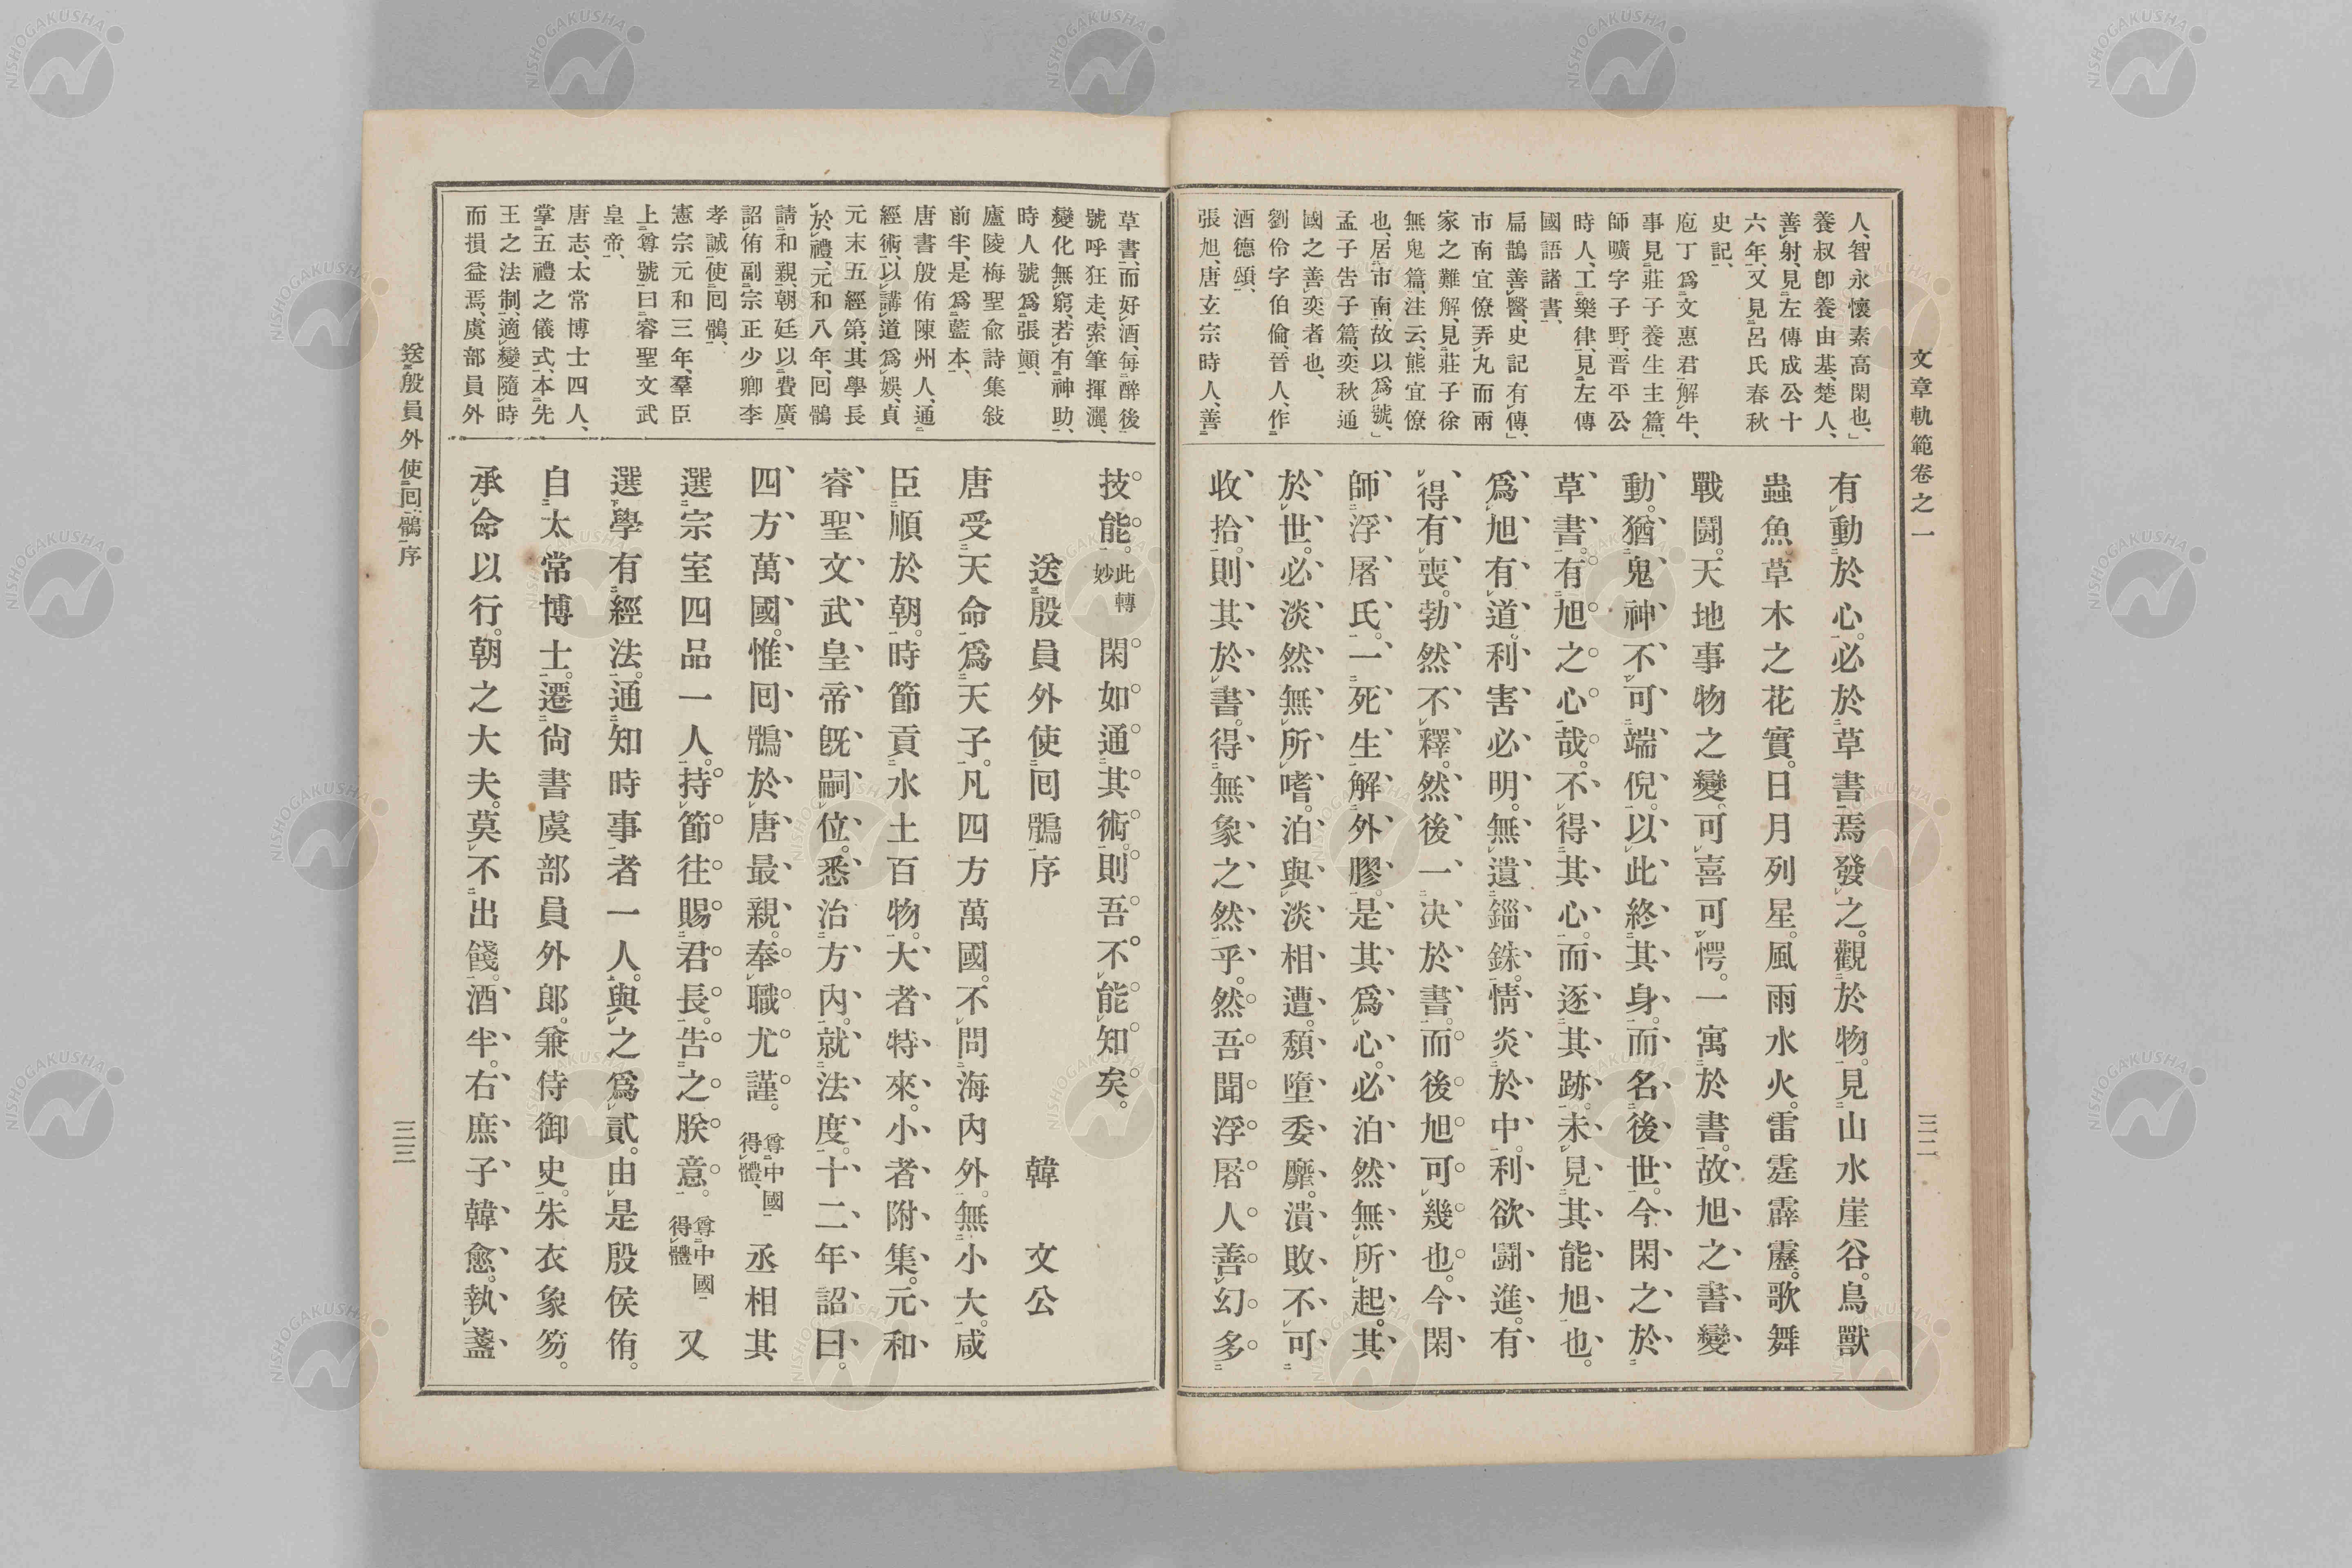 文章軌範卷之一
三二
人、智永懷素高閑也、」
養叔卽養由基、楚人、
善射、見左傳成公十
六年、又見呂氏春秋
史記、
庖丁爲文惠君解牛、
事見莊子養生主篇、」
師曠字子野、晋平公
時人、工樂律、見左傳
國語諸書、
扁鵲善醫、史記有傳、」
市南宜僚弄丸而兩
家之難解、見莊子徐
無鬼篇、注云、熊宜僚
也、居市南、故以爲號、」
孟子告子篇、奕秋通
國之善奕者也、
劉伶字伯倫、晉人、作
酒德頌、
張旭、唐玄宗時人、善
有動於心。必於草書焉發之。觀於物。見山水崖谷。鳥獸
蟲魚草木之花實。日月列星。風雨水火。雷霆霹靂。歌舞
戰鬪。天地事物之變。可喜可愕。一寓於書。故旭之書、變
動。猶鬼神不可端倪。以此終其身。而名後世。今閑之於
草書。有旭之心哉。不得其心。而逐其跡。未見其能旭也。
爲旭有道。利害必明。無遺錙銖。情炎於中。利欲鬪進。有
得有喪。勃然不釋。然後一決於書。而後旭可幾也。今閑
師浮屠氏。一死生解外膠。是其爲心。必泊然無所起。其
於世。必淡然無所嗜。泊與淡相遭。頽墮委靡。潰敗不可
收拾。則其於書。得無象之然乎。然吾聞浮屠人善幻多
草書、而好酒、每醉後
號呼狂走、索筆揮灑、
變化無窮、若有神助、
時人號爲張顚、
廬陵梅聖兪詩集敍
前半、是爲藍本、
唐書殷侑陳州人、通
經術、以講道爲娛、貞
元末五經第、其學長
於禮、元和八年、回鶻
請和親、朝廷以費廣
詔侑副宗正少卿李
孝誠使回鶻、
憲宗元和三年、羣臣
上尊號、曰睿聖文武
皇帝、
唐志、太常博士四人、
掌五禮之儀式、本先
王之法制、適變隨時
而損益焉、虞部員外
技能。此轉妙閑如通其術。則吾不能知矣。
送殷員外使回鶻序　韓文公
唐受天命爲天子。凡四方萬國。不問海內外。無小大。咸
臣順於朝。時節貢水土百物。大者特來。小者附集。元和
睿聖文武皇帝旣嗣位。悉治方內。就法度。十二年詔曰。
四方萬國。惟回鶻於唐最親。奉職尤謹。尊中國得體、丞相其
選宗室四品一人。持節往賜君長。告之朕意。尊中國得體又
選學有經法。通知時事者一人。與之爲貳。由是殷侯侑。
自太常博士。遷尙書虞部員外郞。兼侍御史。朱衣象笏。
承命以行。朝之大夫。莫不出餞。酒半。右庶子韓愈。執盞
送殷員外使回鶻序
三三